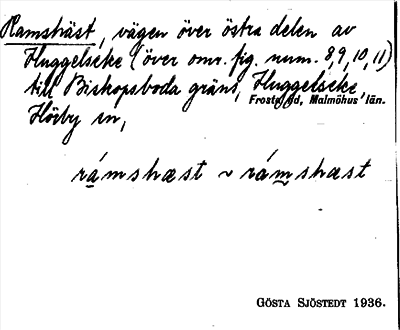 Ramshäst, vägen över östra delen av
Huggelseke (över omr. fig. num. 8, 9, 10, 11)
till Biskopsboda gräns, Huggelseke,
Frosta hd, Malmöhus län.
Hörby sn,
rámshæst ~ rámshæst
GÖSTA SJÖSTEDT 1936.